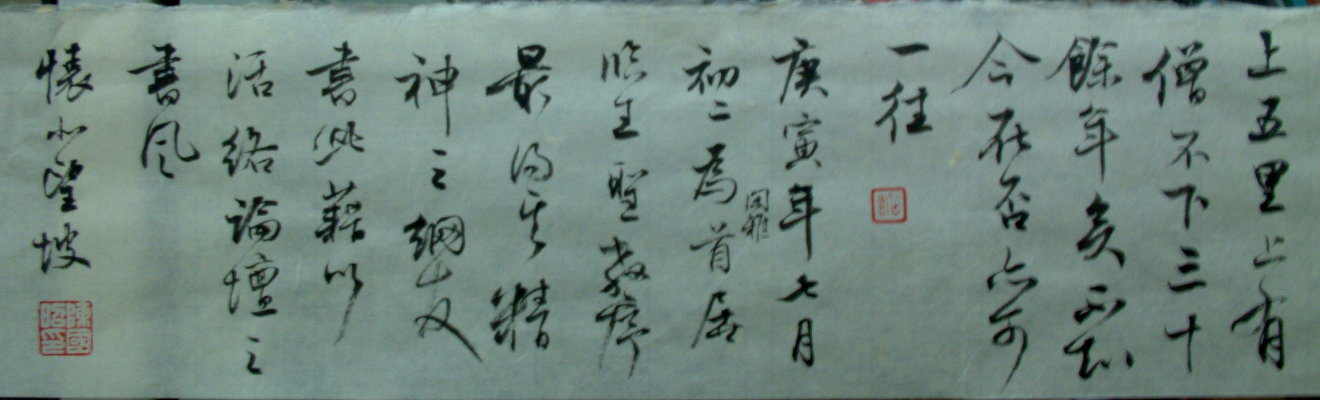 上五里上有
僧不下三十
餘年矣不知
今在否亦可
一往
庚寅年七月
初二為首居
閑雅
臨王聖教序
最得其精
神之綱友
書此藉以
活絡論壇之
書風
懷小望坡